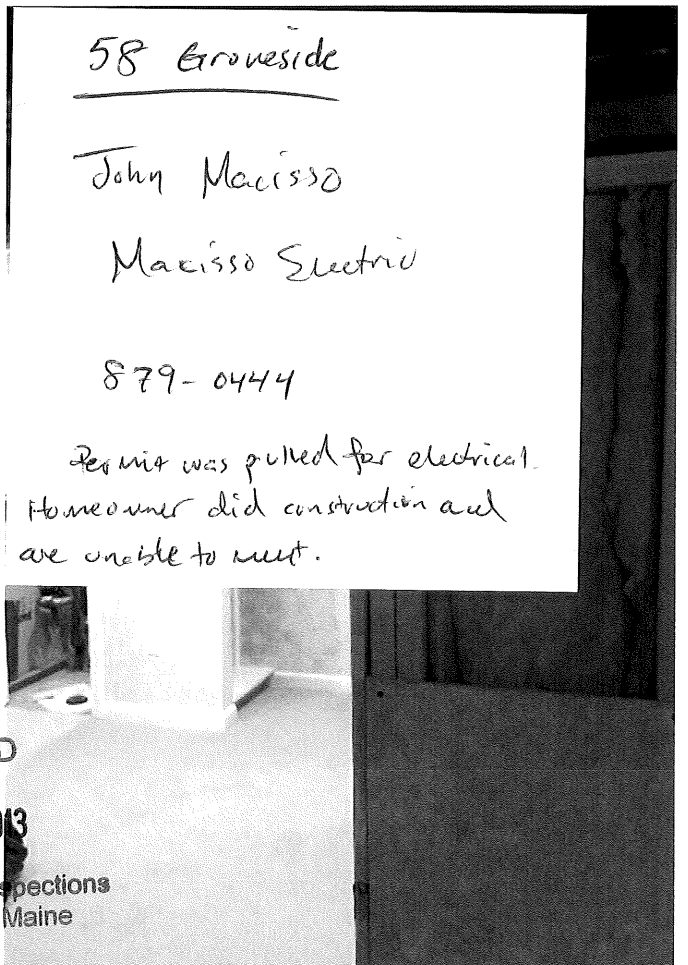 58 Groveside
John Macisso
Macisso Electric
879-0444
Permit was pulled for electrical.
Homeowner did construction and
are unable to meet.
D
013
spections
Maine